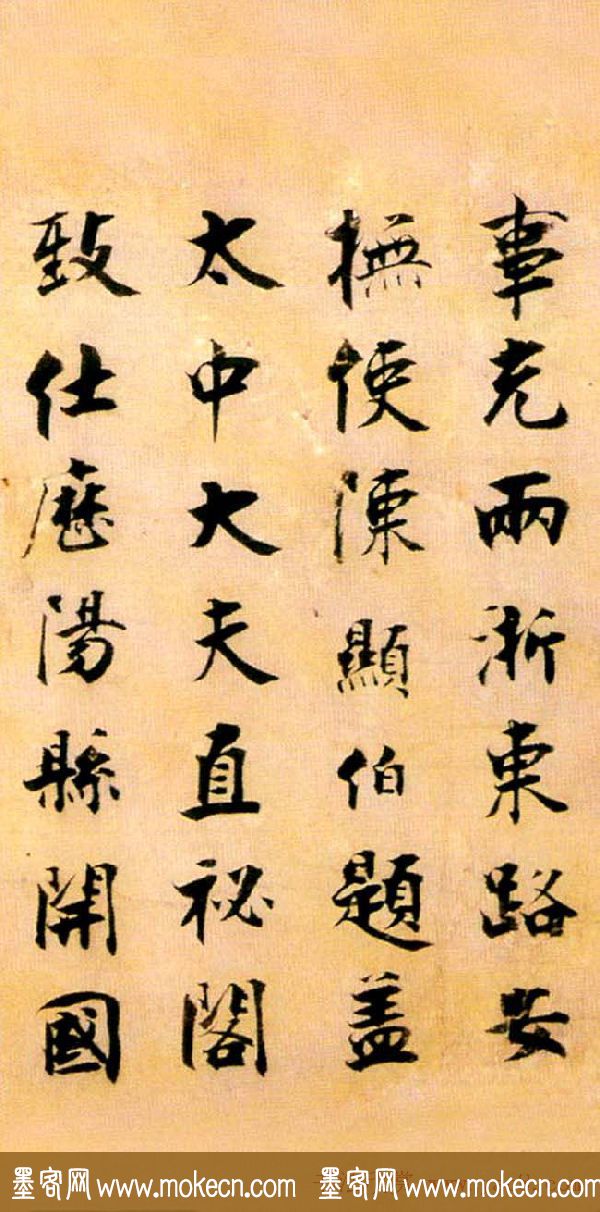 事充兩浙東路安
撫使陳顯伯題蓋
太中大夫直祕閣
致仕歷陽縣開國
墨客网 www.mokecn.com 墨客网 www.mokecn.com